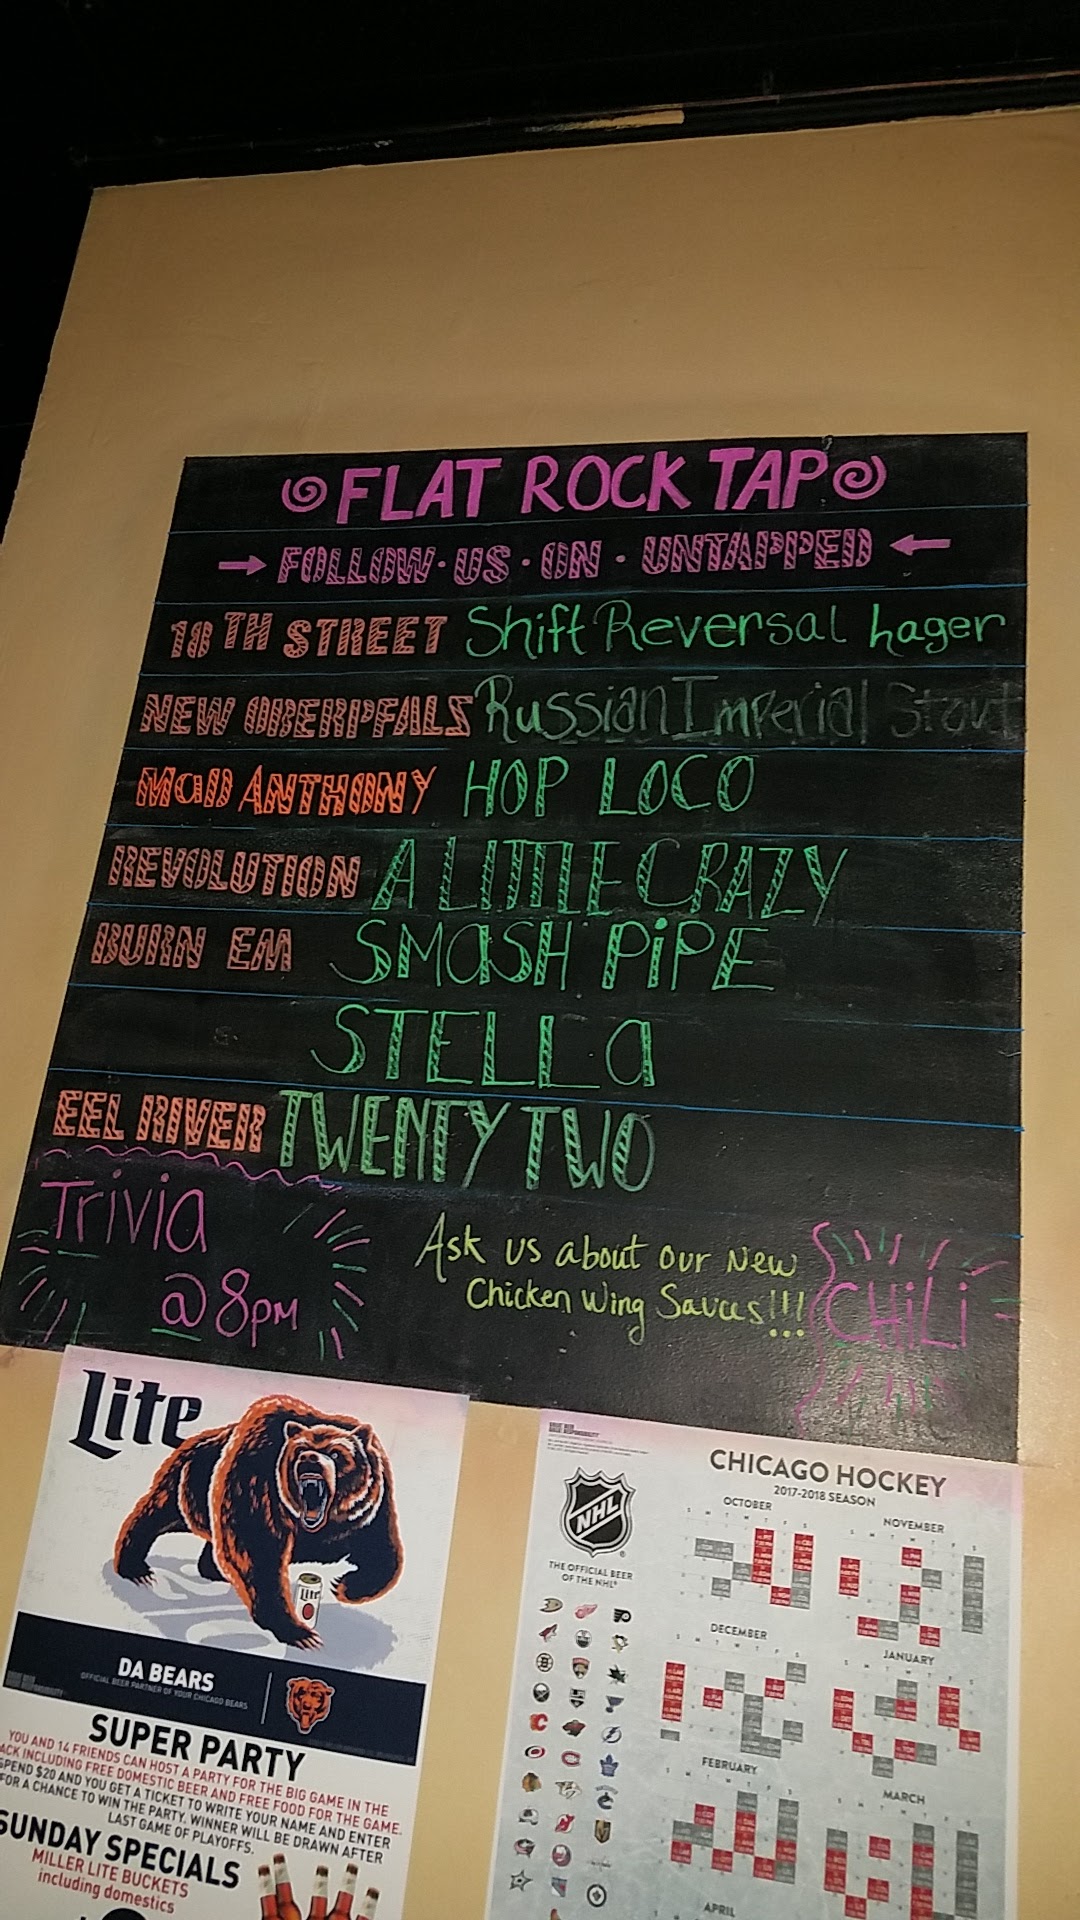 FLAT ROCK TAP
FOLLOW · US · ON · UNTAPPED
10TH STREET Shift Reversal Lager
NEW OBERPFALS Russian Imperial Stout
MaD ANTHONY HOP LOCO
REVOLUTION A LITTLE CRAZY
BURN EM SMaSH PiPE
STELLa
EEL RIVER TWENTY TWO
Trivia
@ 8pm
Ask us about our New
Chicken Wing Sauces!!!
CHiLi
Lite
Lite
DA BEARS
OFFICIAL BEER PARTNER OF YOUR CHICAGO BEARS
SUPER PARTY
YOU AND 14 FRIENDS CAN HOST A PARTY FOR THE BIG GAME IN THE
ACK INCLUDING FREE DOMESTIC BEER AND FREE FOOD FOR THE GAME.
SPEND $20 AND YOU GET A TICKET TO WRITE YOUR NAME AND ENTER
FOR A CHANCE TO WIN THE PARTY. WINNER WILL BE DRAWN AFTER
LAST GAME OF PLAYOFFS.
SUNDAY SPECIALS
MILLER LITE BUCKETS
including domestics
CHICAGO HOCKEY
2017-2018 SEASON
NHL
THE OFFICIAL BEER
OF THE NHL®
OCTOBER
NOVEMBER
DECEMBER
JANUARY
FEBRUARY
MARCH
APRIL